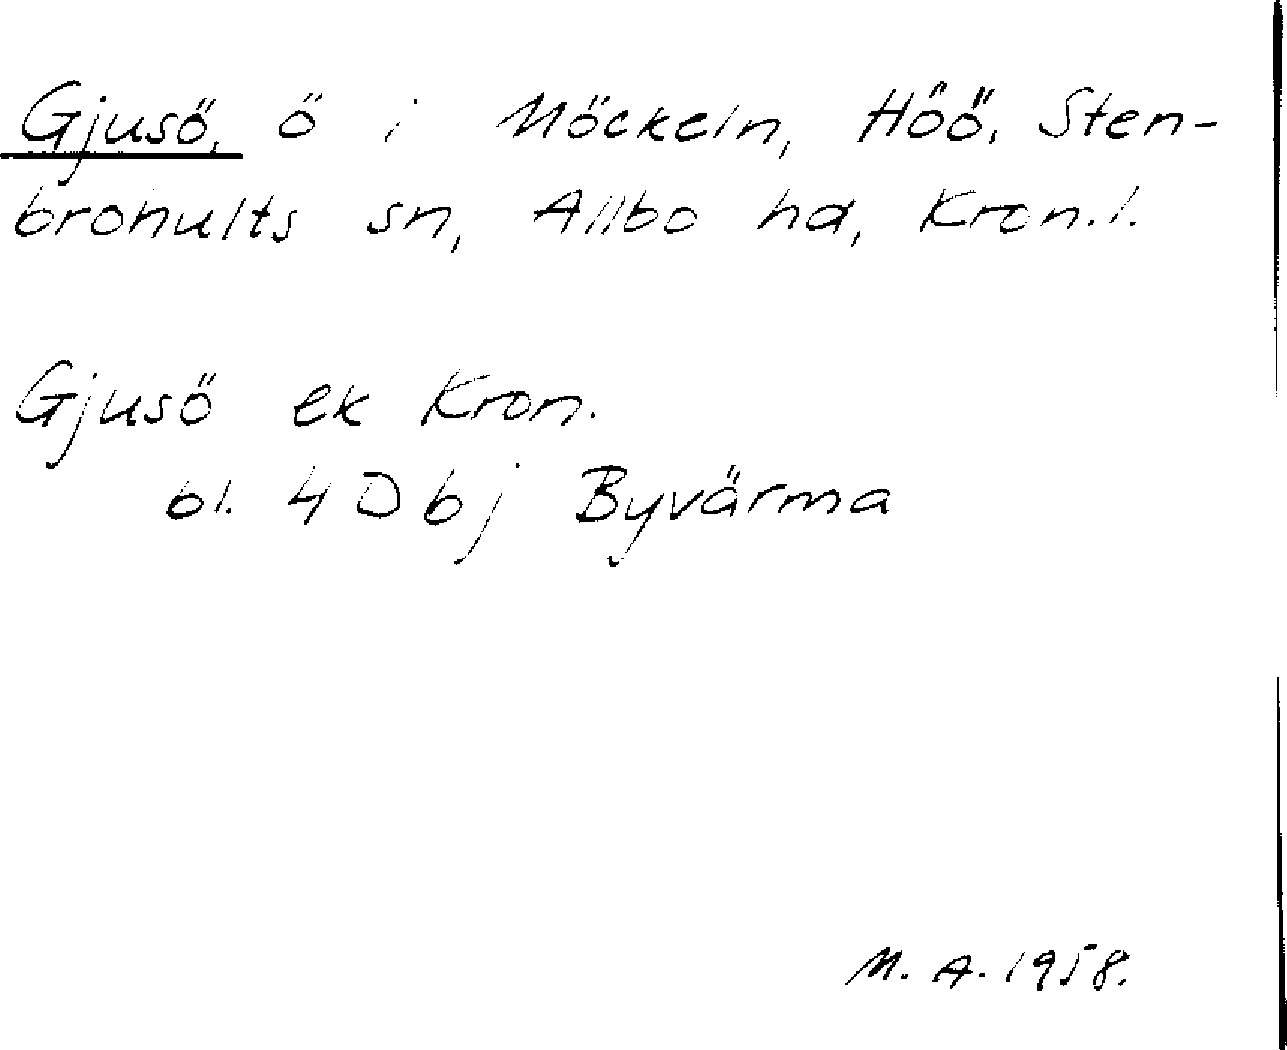 Gjusö, ö i Möckeln, Höö, Sten-
brohults sn, Allbo hd, Kron.l.
Gjusö ek Kron.
bl. 4 D b j Byvärma
M. A. 1958.